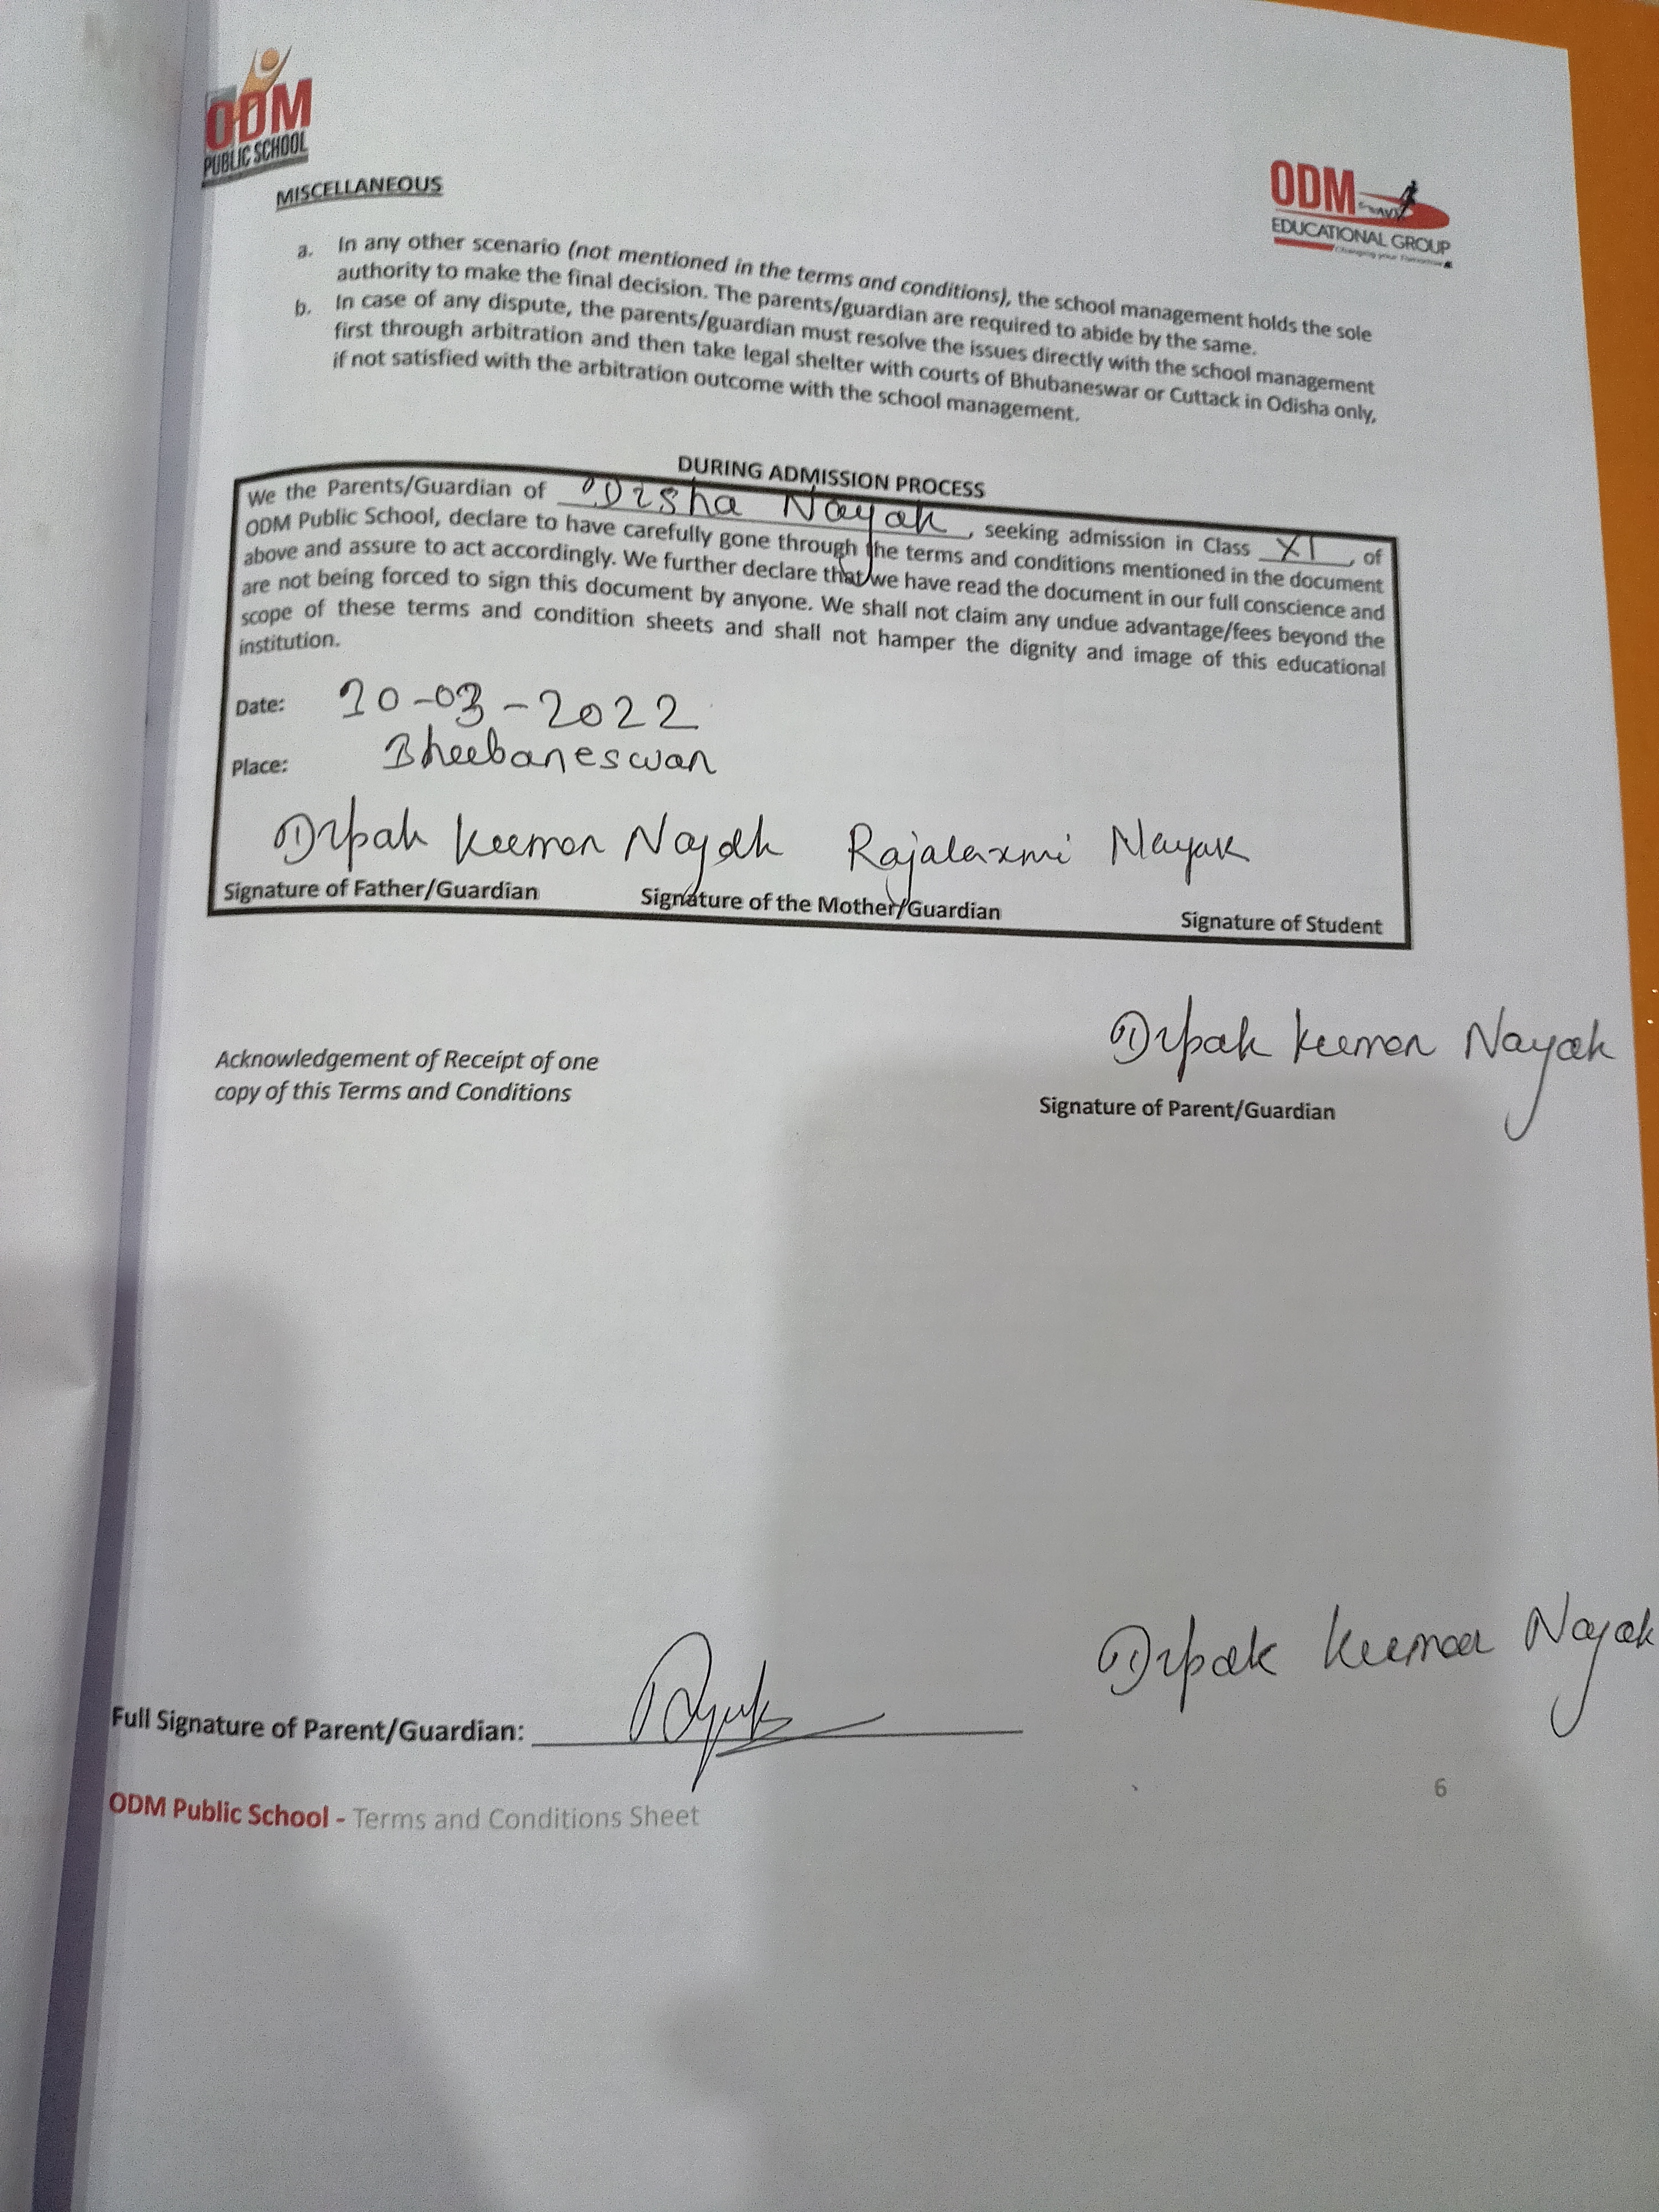 ODM
PUBLIC SCHOOL
ODM
EDUCATIONAL GROUP
Changing your Tomorrow
MISCELLANEOUS
a. In any other scenario (not mentioned in the terms and conditions), the school management holds the sole
authority to make the final decision. The parents/guardian are required to abide by the same.
b. In case of any dispute, the parents/guardian must resolve the issues directly with the school management
first through arbitration and then take legal shelter with courts of Bhubaneswar or Cuttack in Odisha only,
if not satisfied with the arbitration outcome with the school management.
DURING ADMISSION PROCESS
We the Parents/Guardian of Disha Nayak, seeking admission in Class XI, of
ODM Public School, declare to have carefully gone through the terms and conditions mentioned in the document
above and assure to act accordingly. We further declare that we have read the document in our full conscience and
are not being forced to sign this document by anyone. We shall not claim any undue advantage/fees beyond the
scope of these terms and condition sheets and shall not hamper the dignity and image of this educational
institution.
Date: 20-03-2022
Place: Bhubaneswar
Dipak Kumar Nayak Rajalaxmi Nayak
Signature of Father/Guardian Signature of the Mother/Guardian Signature of Student
Dipak Kumar Nayak
Acknowledgement of Receipt of one
copy of this Terms and Conditions
Signature of Parent/Guardian
Dipak Kumar Nayak
Full Signature of Parent/Guardian:
6
ODM Public School - Terms and Conditions Sheet